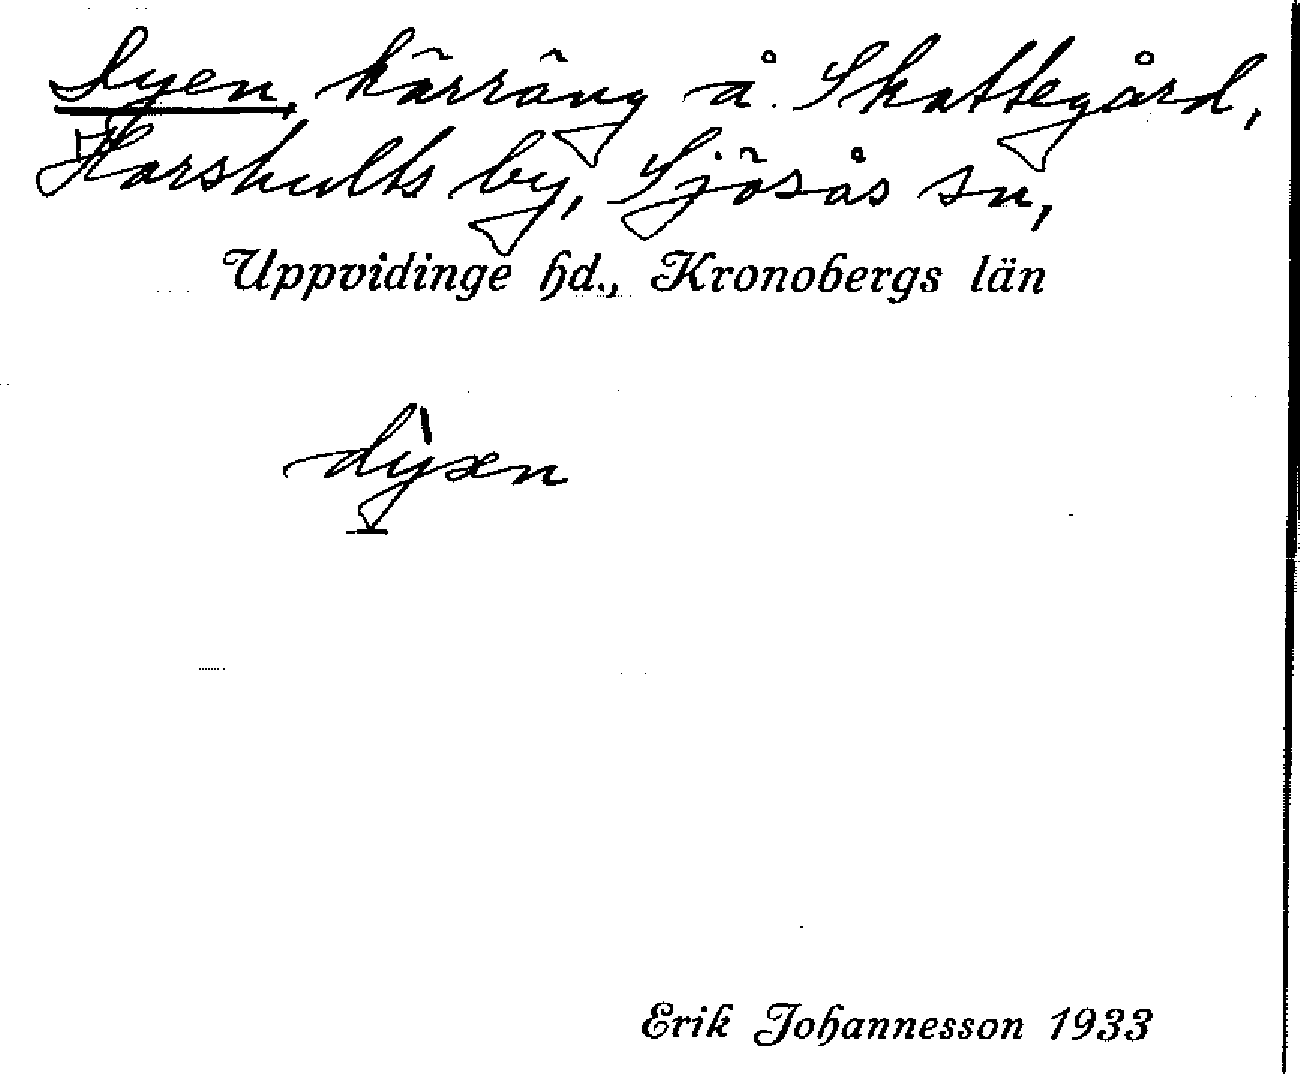 Dyen, kärräng å Skattegård,
Harshults by, Sjösås sn,
Uppvidinge hd., Kronobergs län
dỳæn
Erik Johannesson 1933